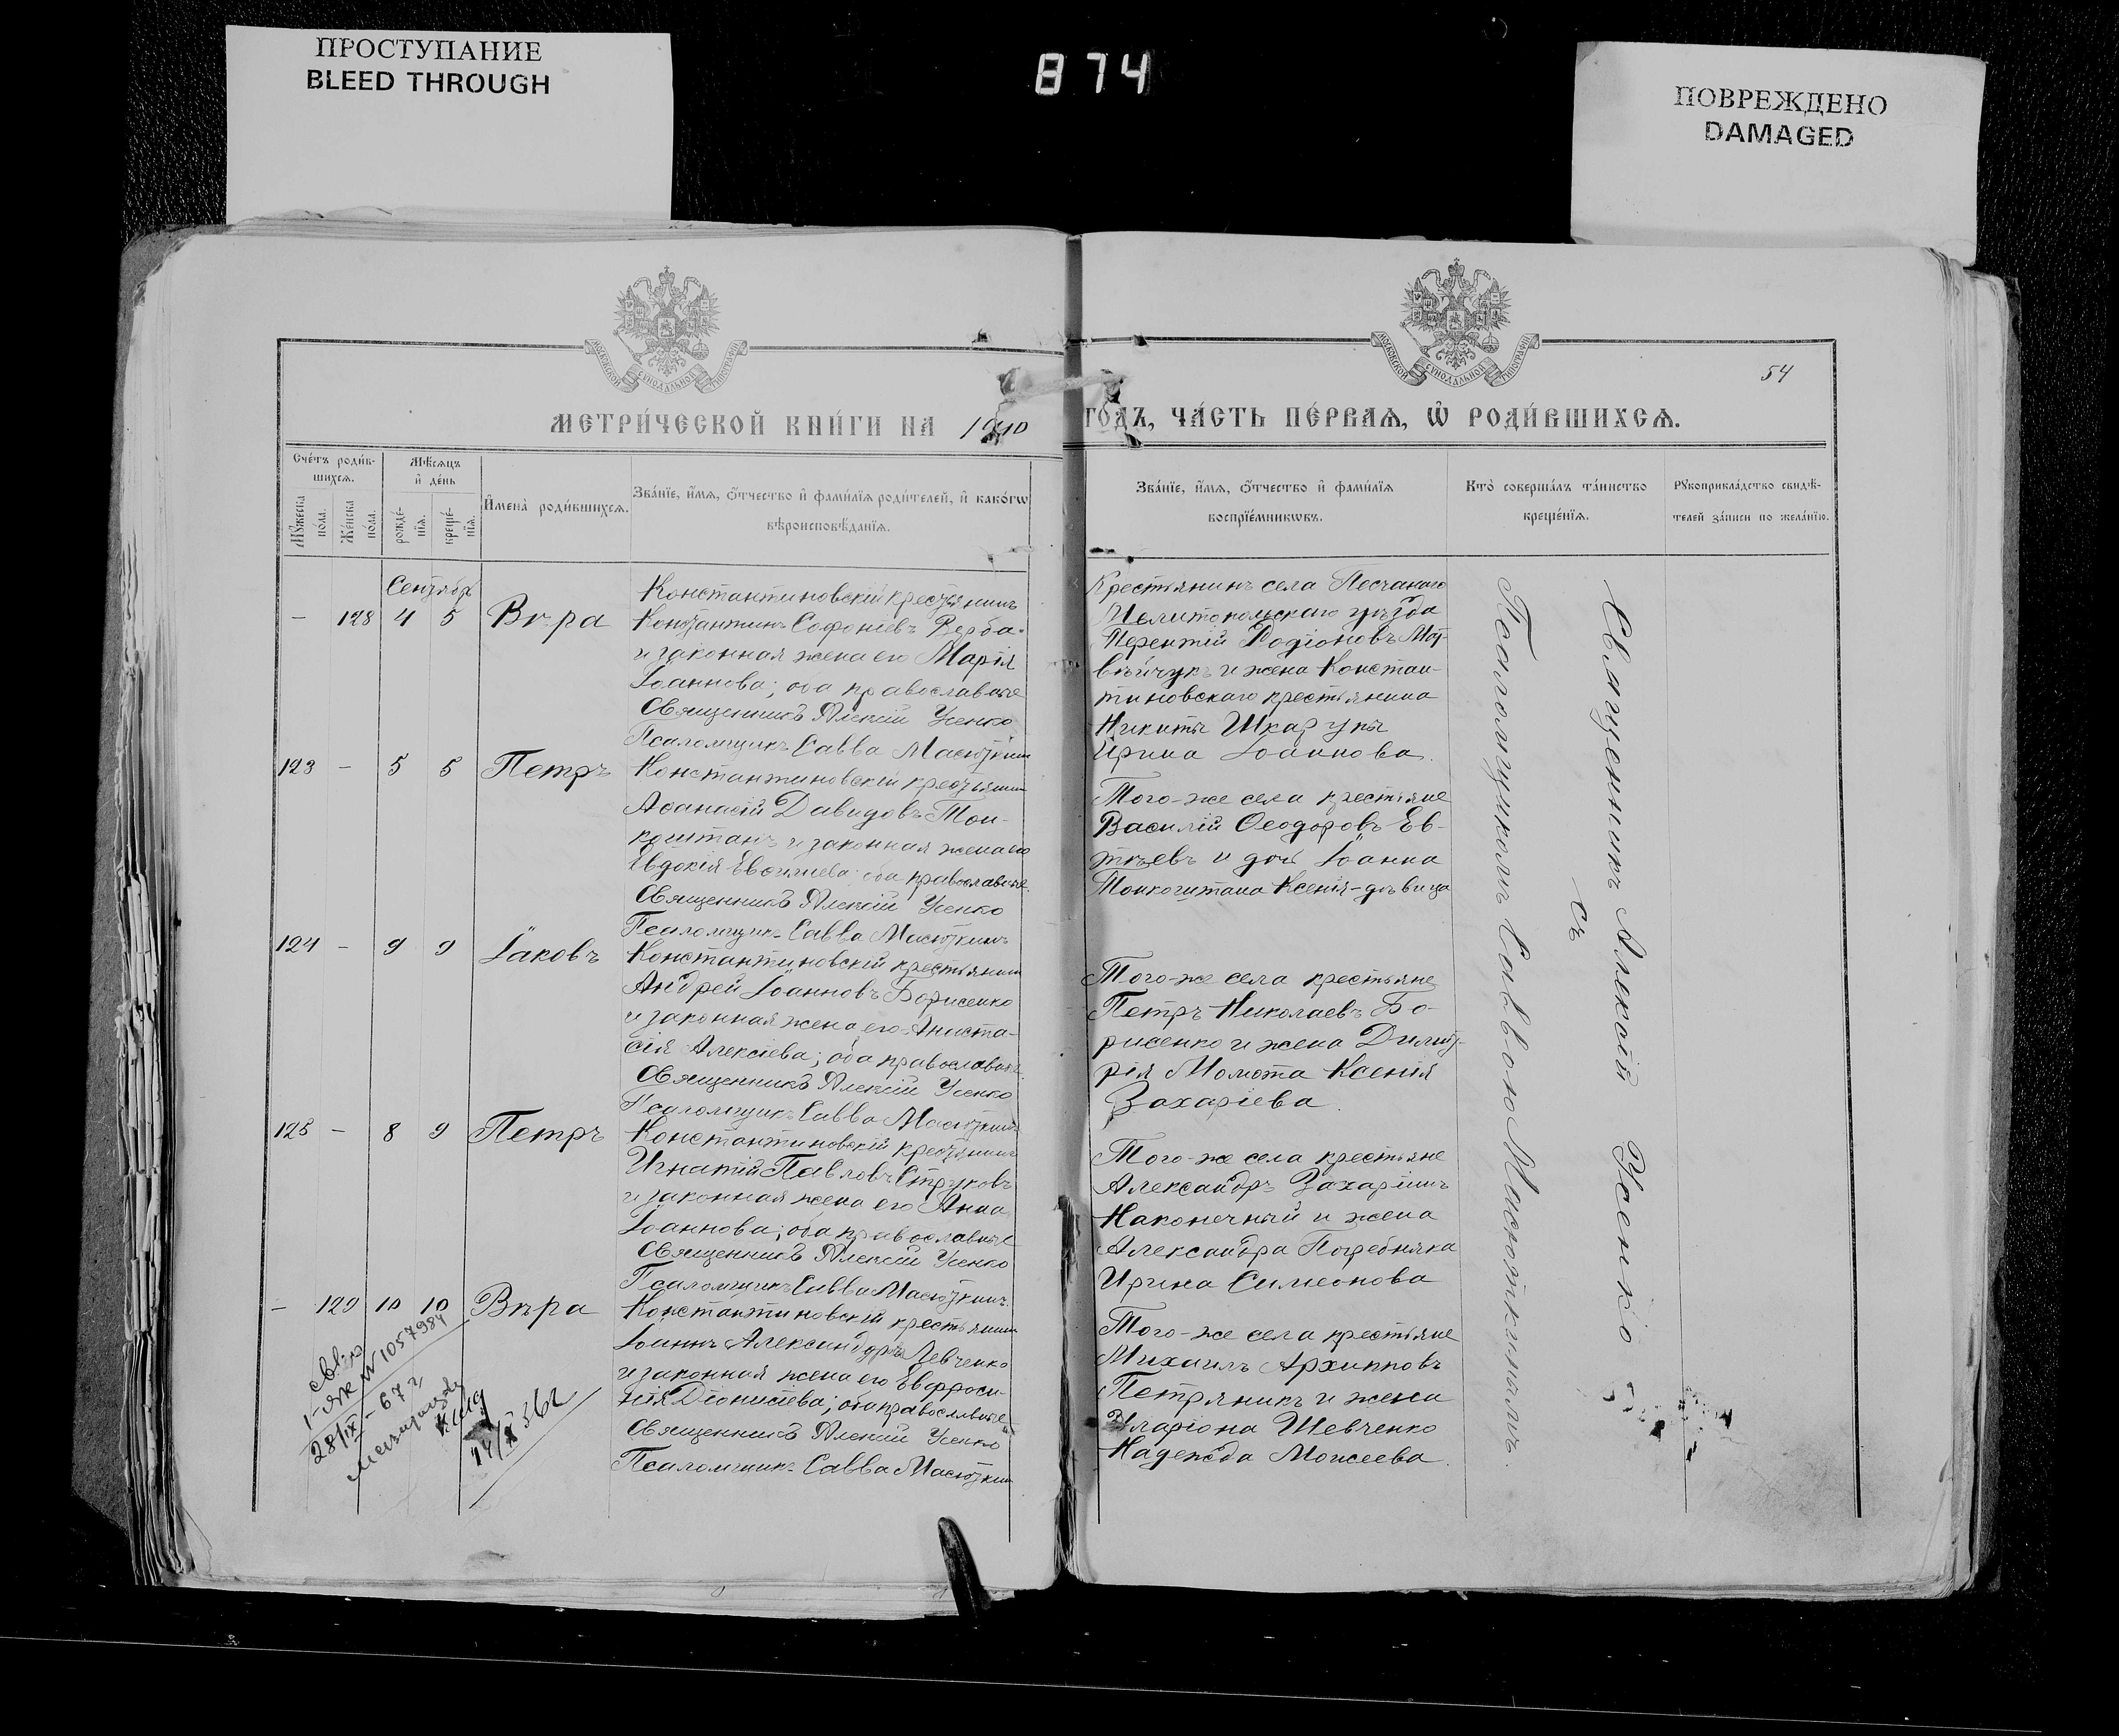 ПРОСТУПАНИЕ
BLEED THROUGH
874
ПОВРЕЖДЕНО
DAMAGED
МОСКОВСКОЙ СѴНОДАЛЬНОЙ ТИПОГРАФІИ
МОСКОВСКОЙ СѴНОДАЛЬНОЙ ТИПОГРАФІИ
54
МЕТРИ́ЧЕСКОЙ КНИ́ГИ НА 1910 ГО́ДЪ, ЧА́СТЬ ПЕ́РВАѦ, Ѽ РОДИ́ВШИХСѦ.
Сче́тъ роди́в-
шихсѧ.
Мѹ́жеска
по́ла.
Же́нска
по́ла.
Мѣ́сѧцъ
и҆ де́нь
рожде́-
нїѧ.
креще́-
нїѧ.
И҆мена̀ роди́вшихсѧ.
Зва́нїе, и҆́мѧ, ѻ҆́тчество и҆ фами́лїѧ роди́телей, и҆ како́гѡ
вѣроисповѣ́данїѧ.
Зва́нїе, и҆́мѧ, ѻ҆́тчество и҆ фами́лїѧ
воспрїе́мникѡвъ.
Кто̀ соверша́лъ та́инство
креще́нїѧ.
Рꙋкоприкла́дство свидѣ́-
телей за́писи по жела́нїю.
Сентябр
— 128 4 5 Вѣра
Константиновскій крестьянинъ
Константинъ Софоніевъ Верба
и законная жена его Марія
Іоаннова; оба православные
Священникъ Алексій Усенко
Псаломщикъ Савва Масюткинъ
Крестьянинъ села Песчанаго
Мелитопольскаго уѣзда
Терентій Родіоновъ Мат-
вѣйчукъ и жена Констан-
тиновскаго крестьянина
Никиты Шкарупы
Ирина Іоаннова.
123 — 5 5 Петръ
Константиновскій крестьянин
Аѳанасій Давидовъ Тон-
коштанъ и законная жена его
Евдокія Евѳиміева; оба православные
Священникъ Алексій Усенко
Псаломщикъ Савва Масюткинъ
Того-же села крестьяне
Василій Ѳеодоровъ Ев-
тѣевъ и дочь Іоанна
Тонкоштана Ксенія-дѣвица
124 — 9 9 Іаковъ
Константиновскій крестьянин
Андрей Іоанновъ Борисенко
и законная жена его Анаста-
сія Алексіева; оба православные
Священникъ Алексій Усенко
Псаломщикъ Савва Масюткинъ
Того-же села крестьяне
Петръ Николаевъ Бо-
рисенко и жена Димит-
рія Момота Ксенія
Захаріева.
125 — 8 9 Петръ
Константиновскій крестьянинъ
Игнатій Павловъ Струковъ
и законная жена его Анна
Іоаннова; оба православные
Священникъ Алексій Усенко
Псаломщикъ Савва Масюткинъ
Того-же села крестьяне
Александръ Захаріинъ
Наконечный и жена
Александра Погребняка
Ирина Симеонова
— 129 10 10 Вѣра
Константиновскій крестьянин
Іоаннъ Александровъ Левченко
и законная жена его Евфроси-
нія Діонисіева; оба православные
Священникъ Алексій Усенко
Псаломщикъ Савва Масюткин
Того-же села крестьяне
Михаилъ Архиповъ
Петряникъ и жена
Иларіона Шевченко
Надежда Моисеева.
Священникъ Алексій Усенко
съ
Псаломщикомъ Саввою Масюткинымъ.
I-ЯЖ N 1057984
28/IX-67 г